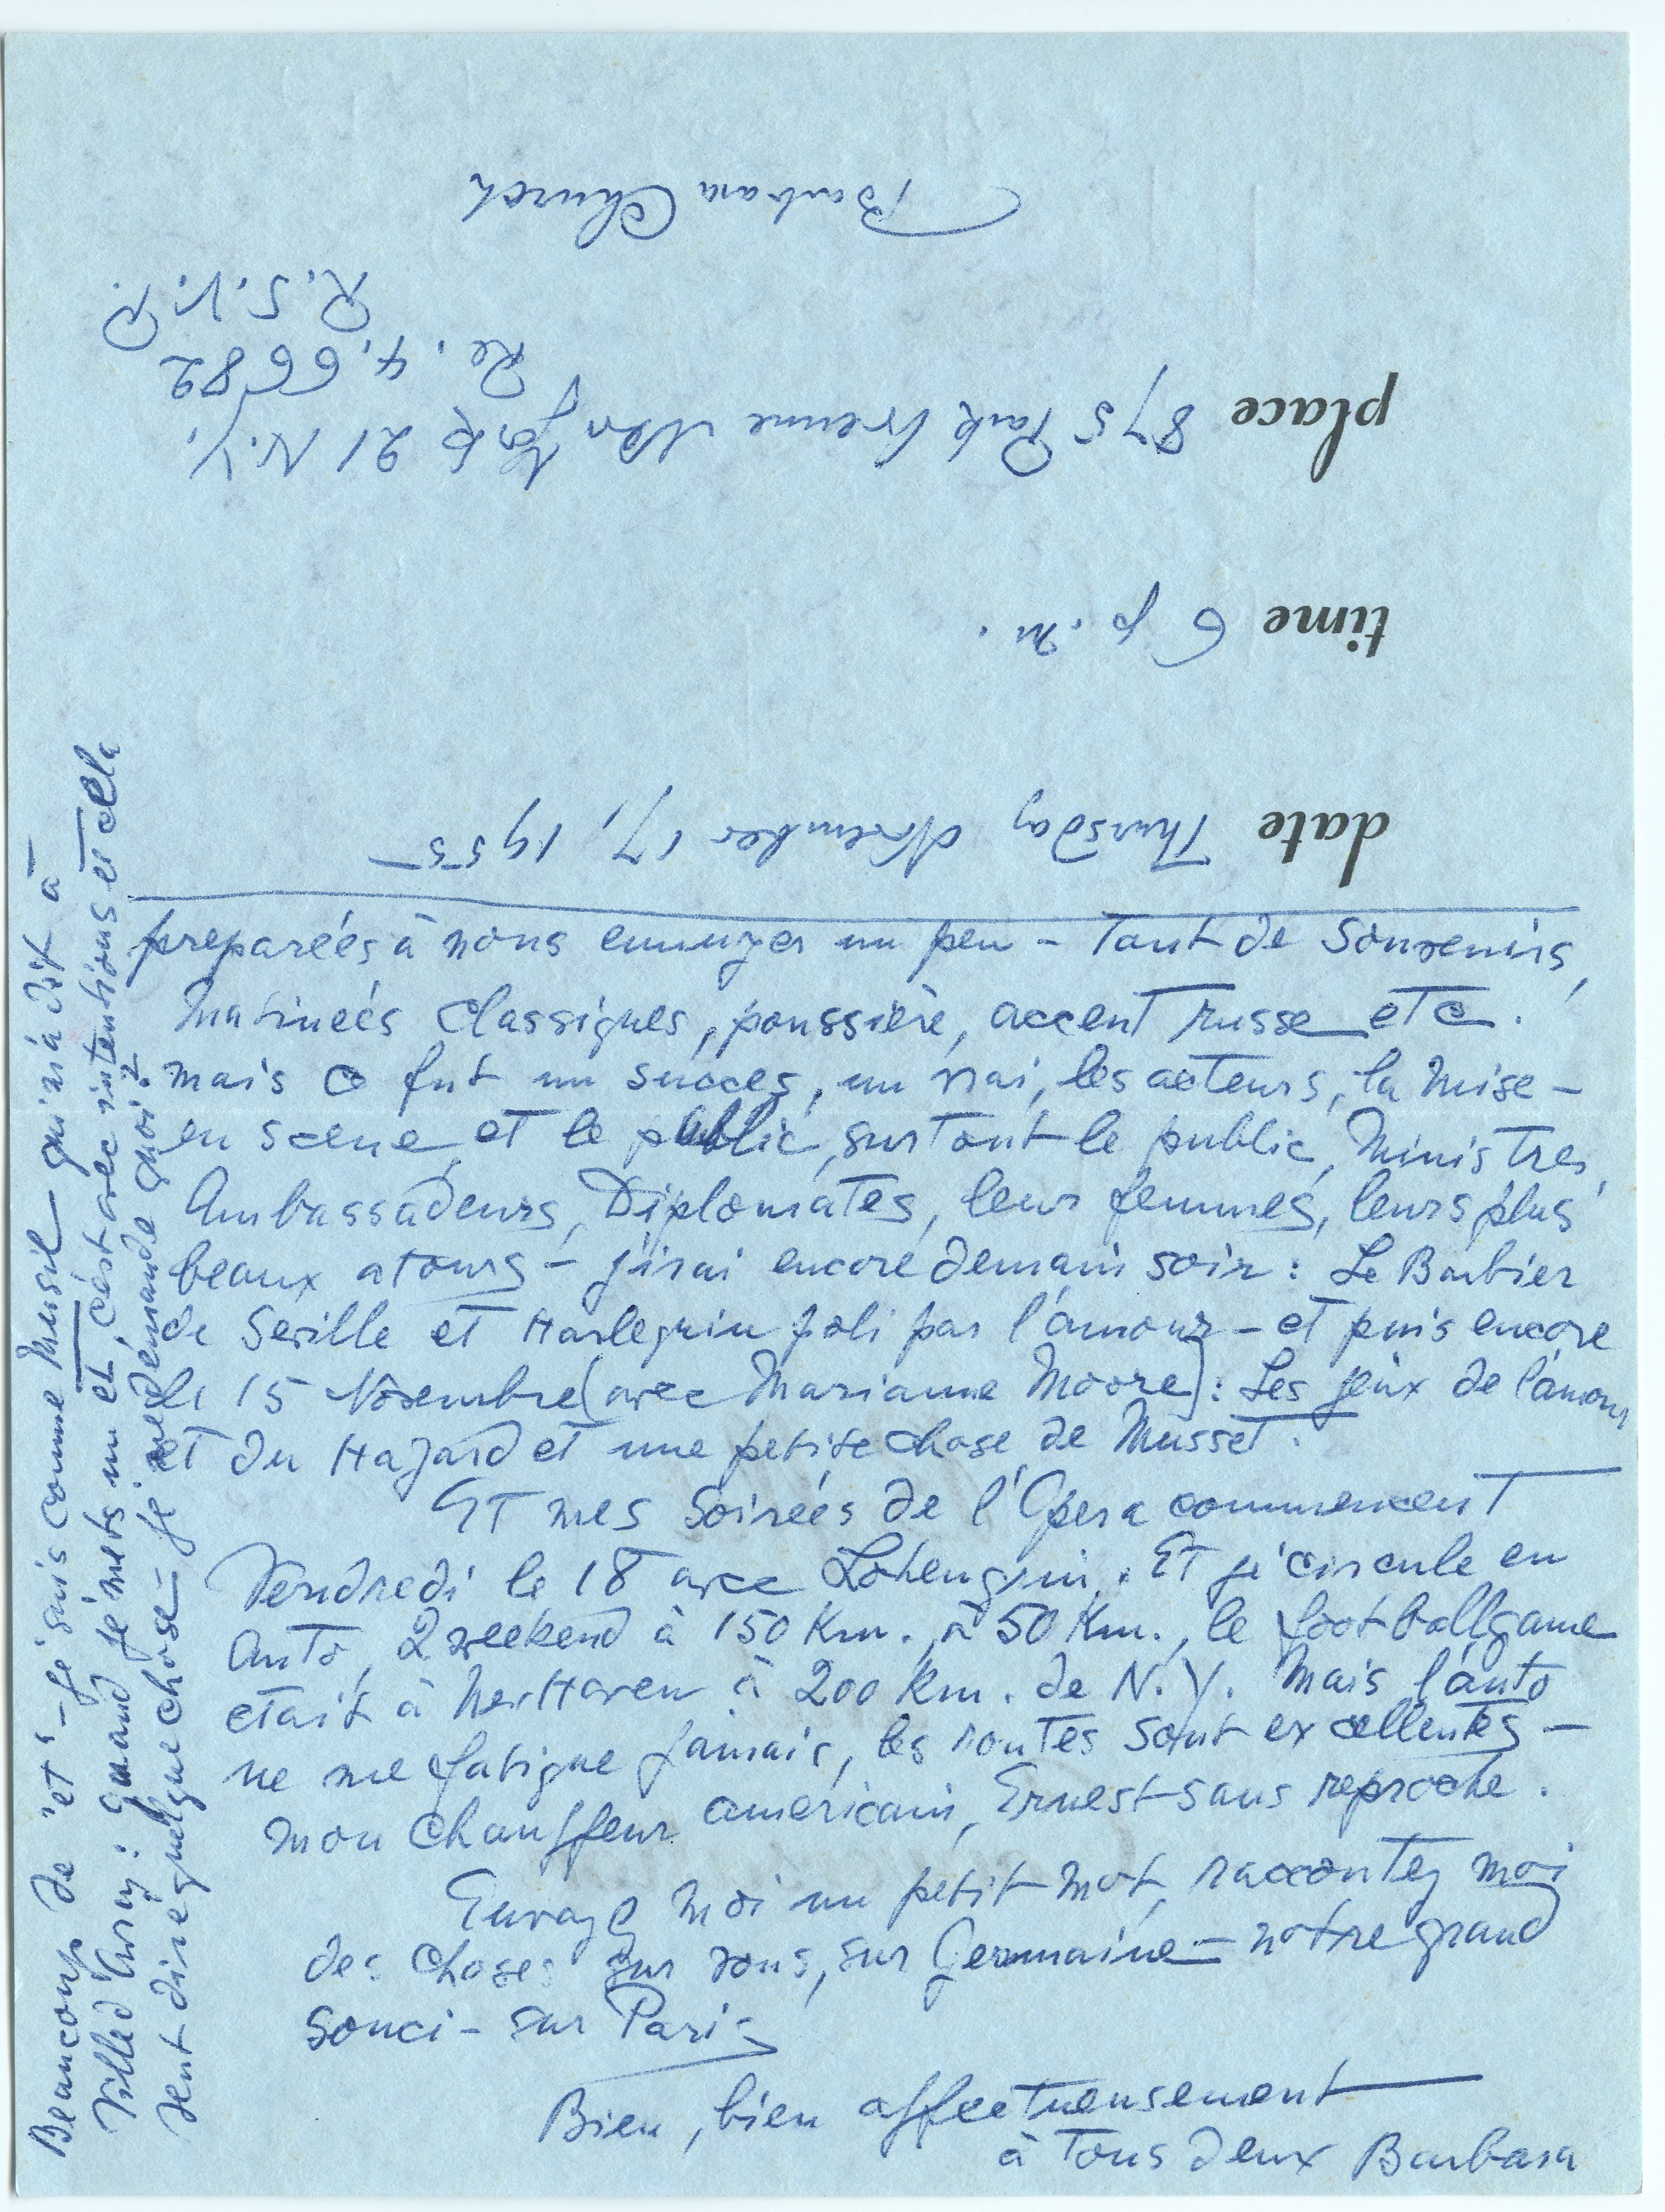 date Thursday November 17, 1955
time 6 p.m.
place 875 Park Avenue New York 21 N.Y.
Re. 4. 6682
R.S.V.P.
Barbara Church
preparées à nous ennuyer un peu - Tant de souvenirs,
Matineés classiques, poussière, accent russe etc.
mais ce fut un succes, un vrai, les acteurs, la mise-
en scene, et le public, surtout le public, Ministres,
Ambassadeurs, Diplomates, leur femmes, leurs plus
beaux atours - j'irai encore demain soir : Le Barbier
de Seville et Harlequin poli par l'amour - et puis encore
le 15 Novembre (avec Marianne Moore) : Les jeux de l'amour
et du Hazard et une petite chose de Musset.
Et mes soireés de l'Opera commencent
Vendredi le 18 avec Lohengrin. Et je circule en
auto, 2 weekend à 150 Km., à 50 Km., le footballgame
etait à New Haven à 200 Km. de N.Y. Mais l'auto
ne me fatigue jamais, les routes sont excellentes -
mon chauffeur americain, Ernest sans reproche.
Envoyez moi un petit mot, raccontez moi
des choses sur vous, sur Germaine - notre grand
souci - sur Paris
Bien, bien affectueusement
à Tous deux Barbara
Beaucoup de "et" - je suis comme Musil qui a dit à
: quand je mets un et, c'est avec intentions et cela
veut dire quelque chose - je me demande quoi ?